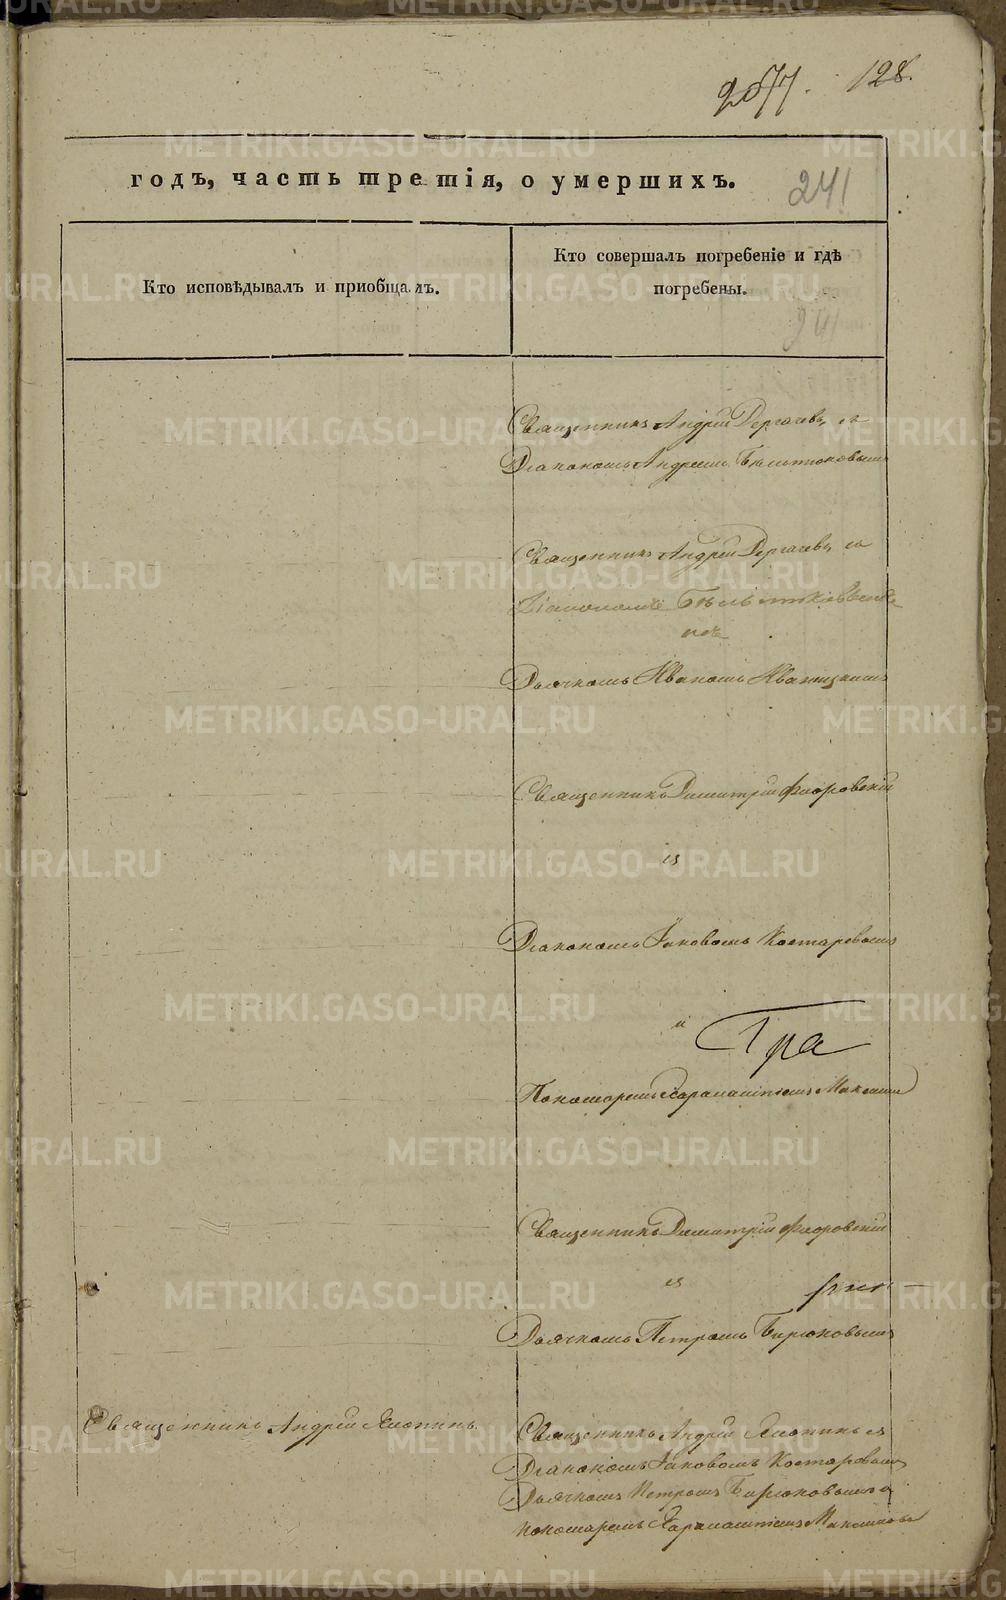 2077. 128.
годъ, часть третія, о умершихъ. 241
Кто исповѣдывалъ и приобщалъ.
Кто совершалъ погребеніе и гдѣ
погребены.
Священникъ Андрей Дергачевъ, съ
Діакономъ Андреемъ Бѣльтюковымъ
Священникъ Андрей Дергачевъ, съ
Діакономъ Бѣльтюковымъ
Дьячкомъ Иваномъ Иваницкимъ
Священникъ Димитрій Флоровскій
съ
Діакономъ Іаковомъ Костаревымъ
и
Пономаремъ Харлампіемъ
Священникъ Димитрій Флоровскій
съ
Дьячкомъ Петромъ Бирюковымъ
Священникъ Андрей
Священникъ Андрей съ
Діакономъ Іаковомъ Костаревымъ
Дьячкомъ Петромъ Бирюковымъ и
пономаремъ Харлампіемъ
METRIKI.GASO-URAL.RU